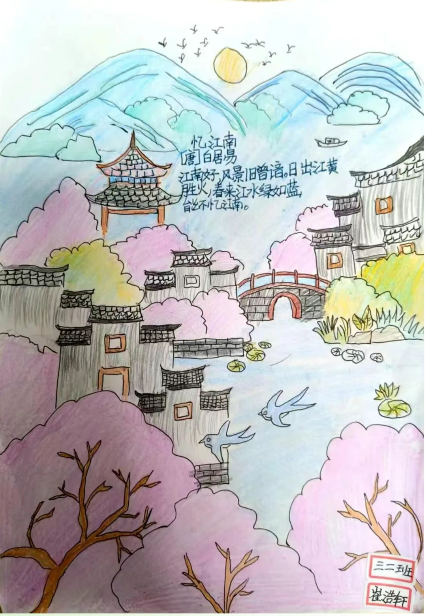 忆江南
[唐]白居易
江南好,风景旧曾谙。日出江黄
胜火,春来江水绿如蓝,
能不忆江南。
三二班
崔浩轩